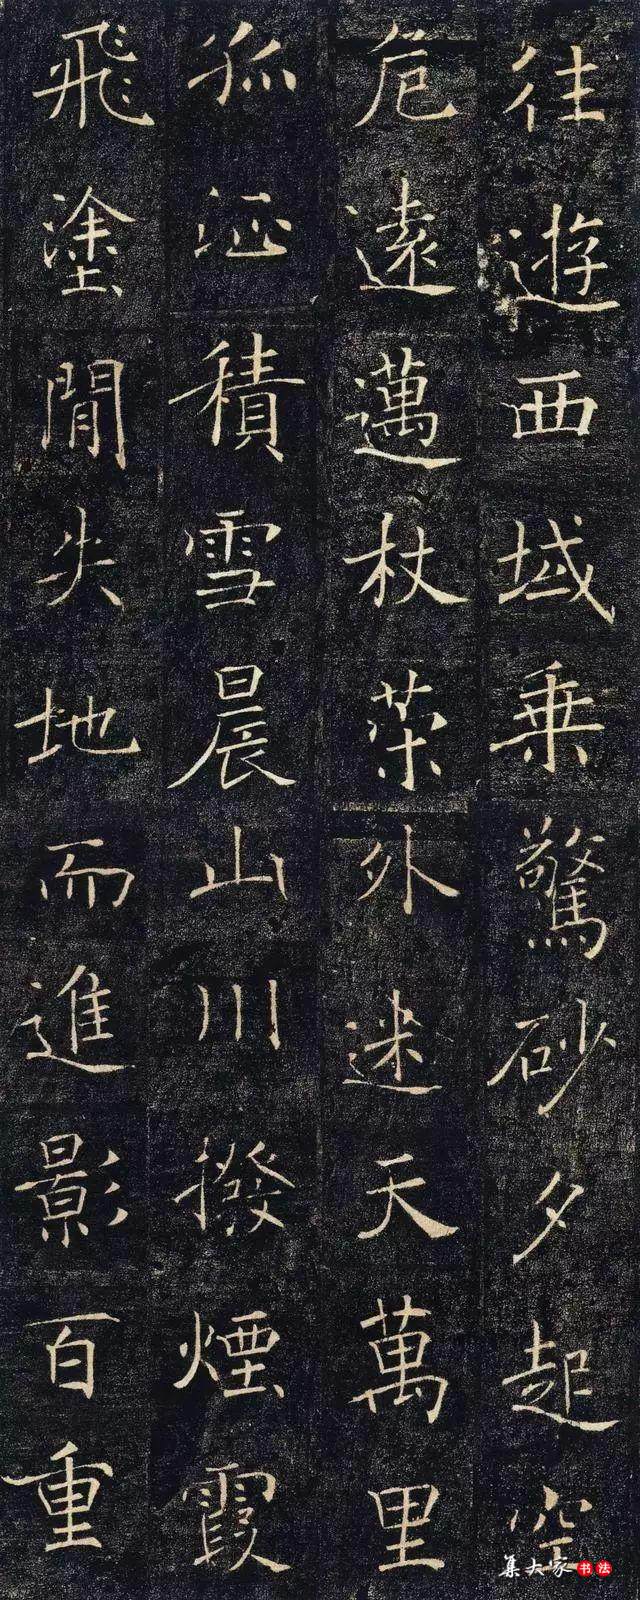 往遊西域乘驚砂夕起空
危遠邁杖策外迷天萬里
孤征積雪晨山川撥煙霞
飛塗閒失地而進影百重
集大家书法